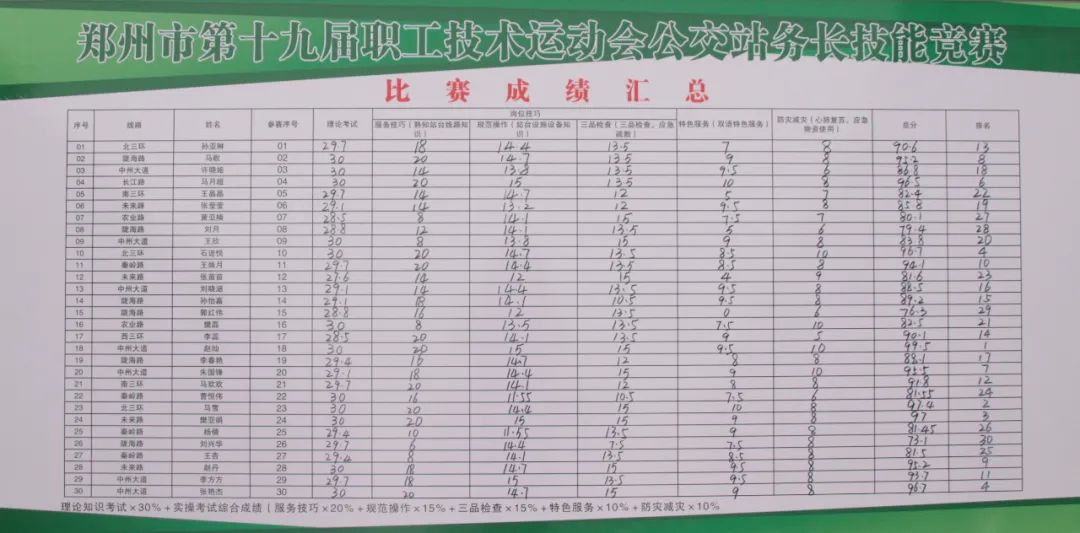 郑州市第十九届职工技术运动会公交站务长技能竞赛
比赛成绩汇总
序号 线路 姓名 参赛序号 理论考试 岗位技巧 总分 排名
服务技巧（熟知站台线路知识） 规范操作（站台设施设备知识） 三品检查（三品检查、应急疏散） 特色服务（双语特色服务） 防灾减灾（心肺复苏、应急物资使用）
01 北三环 孙亚琳 01 29.7 18 14.4 13.5 7 8 90.6 13
02 陇海路 马敏 02 30 20 14.7 13.5 9 8 95.2 8
03 中州大道 许晓姬 03 30 14 13.8 13.5 9.5 6 86.8 18
04 长江路 马月超 04 30 20 15 13.5 10 8 96.5 6
05 南三环 王晶晶 05 29.7 14 14.7 12 5 7 82.4 22
06 未来路 张莹莹 06 29.1 14 13.2 12 9.5 8 85.8 19
07 农业路 黄亚楠 07 28.5 8 14.1 15 7.5 7 80.1 27
08 陇海路 刘月 08 28.8 12 14.1 13.5 5 6 79.4 28
09 中州大道 王欣 09 30 8 13.8 15 9 8 83.8 20
10 北三环 石诺悦 10 30 20 14.7 13.5 8.5 10 96.7 4
11 秦岭路 王焕月 11 29.7 20 14.4 13.5 8.5 8 94.1 10
12 未来路 张苗苗 12 27.6 14 12 15 4 9 81.6 23
13 中州大道 刘晓涵 13 29.1 14 14.4 13.5 9.5 8 88.5 16
14 陇海路 孙怡嘉 14 29.1 18 14.1 10.5 9.5 8 89.2 15
15 陇海路 郭红伟 15 28.8 16 12 13.5 0 6 76.3 29
16 农业路 樊磊 16 30 8 13.5 13.5 7.5 10 82.5 21
17 西三环 李蕊 17 28.5 20 14.1 13.5 9 5 90.1 14
18 中州大道 赵灿 18 30 20 15 15 9.5 10 99.5 1
19 陇海路 李春艳 19 29.4 16 14.7 12 8 8 88.1 17
20 中州大道 朱国锋 20 29.1 18 14.4 15 9 10 95.5 7
21 南三环 马欢欢 21 29.7 20 14.1 12 8 8 91.8 12
22 秦岭路 曹恒伟 22 30 16 11.55 10.5 7.5 6 81.55 24
23 北三环 马雪 23 30 20 14.4 15 10 8 97.4 2
24 未来路 樊亚娟 24 30 20 15 15 9 8 97 3
25 秦岭路 杨倩 25 29.4 10 11.55 13.5 9 8 81.45 26
26 陇海路 刘兴华 26 29.7 6 14.4 7.5 7.5 8 73.1 30
27 秦岭路 王杏 27 29.4 8 14.1 13.5 8.5 8 81.5 25
28 未来路 赵丹 28 30 18 14.7 15 9.5 8 95.2 9
29 中州大道 李方方 29 29.7 18 15 13.5 9.5 8 93.7 11
30 中州大道 张艳杰 30 30 20 14.7 15 9 8 96.7 4
理论知识考试×30%+实操考试综合成绩（服务技巧×20%+规范操作×15%+三品检查×15%+特色服务×10%+防灾减灾×10%